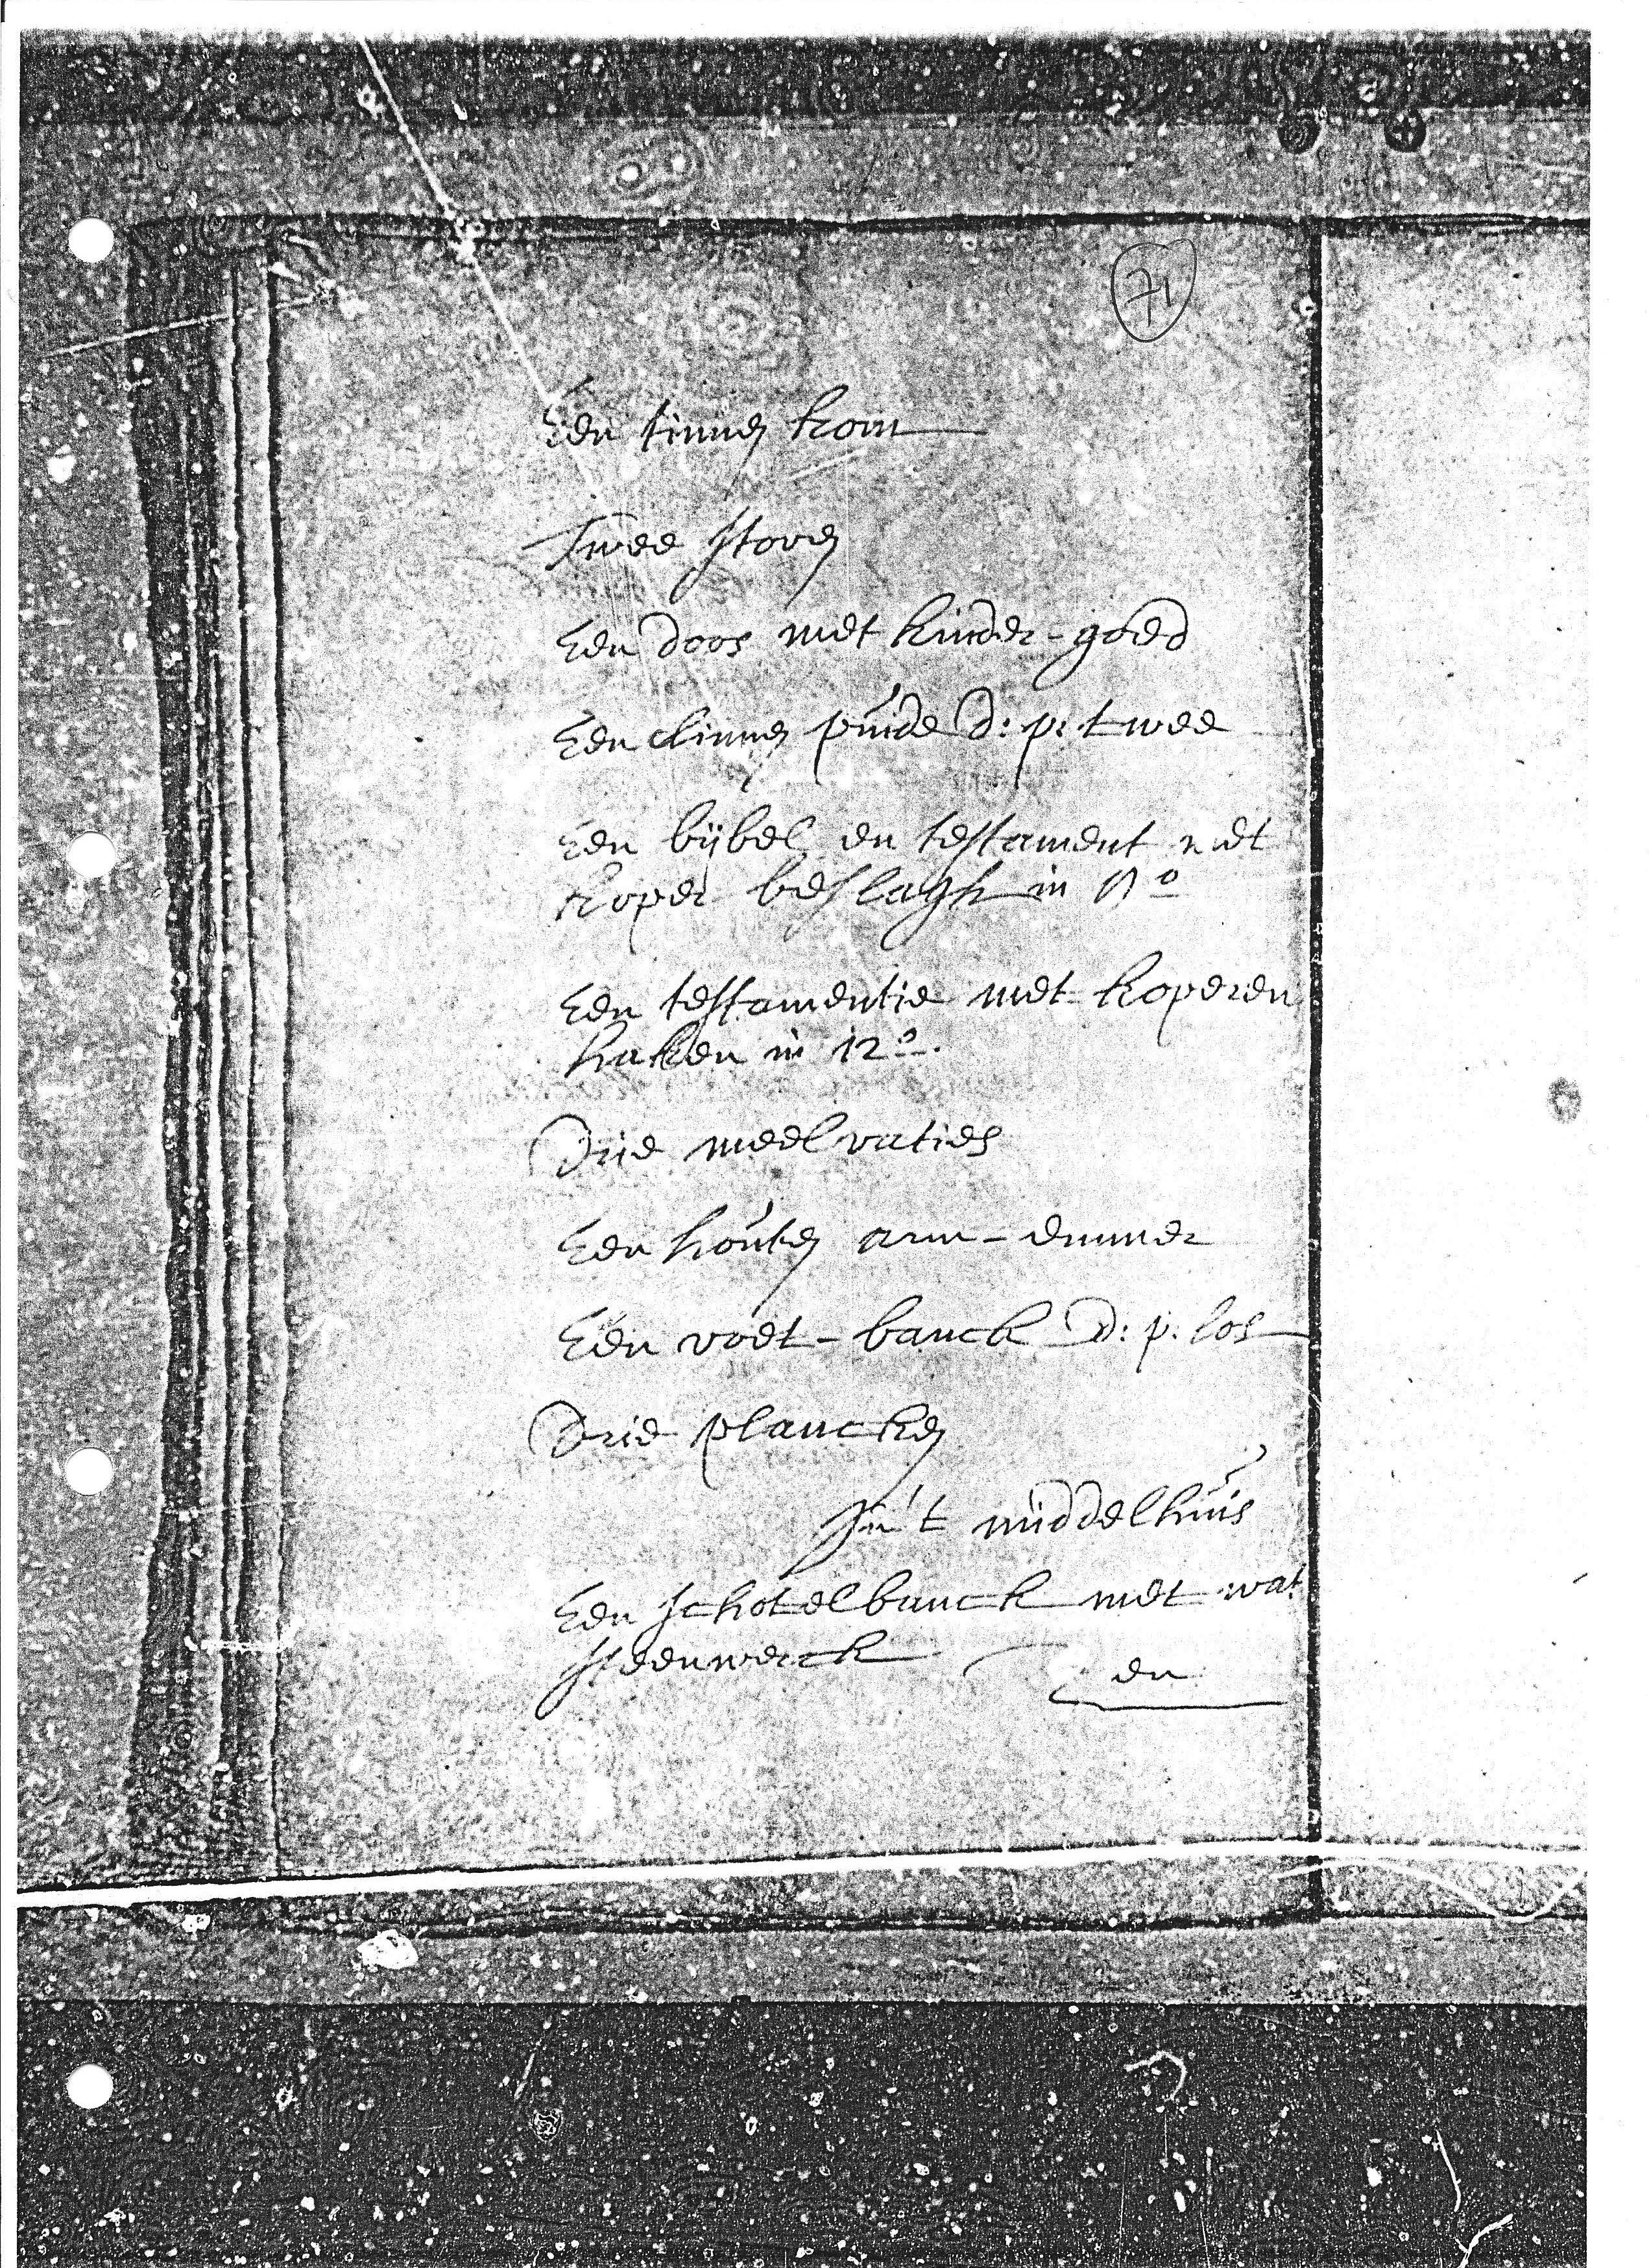 71
Een tinnen kom
Twee stoven
Een doos met kinder-goed
Een linnen puide d: p: twee
Een bijbel en testament met
koper beslagh in 8º
Een testamentie met koperen
haken in 12º.
Drie meelvaties
Een houten arm-emmer
Een voet-banck d: p: los
Drie plancken
In 't middelhuis
Een schotelbanck met wat
steenwerck
en